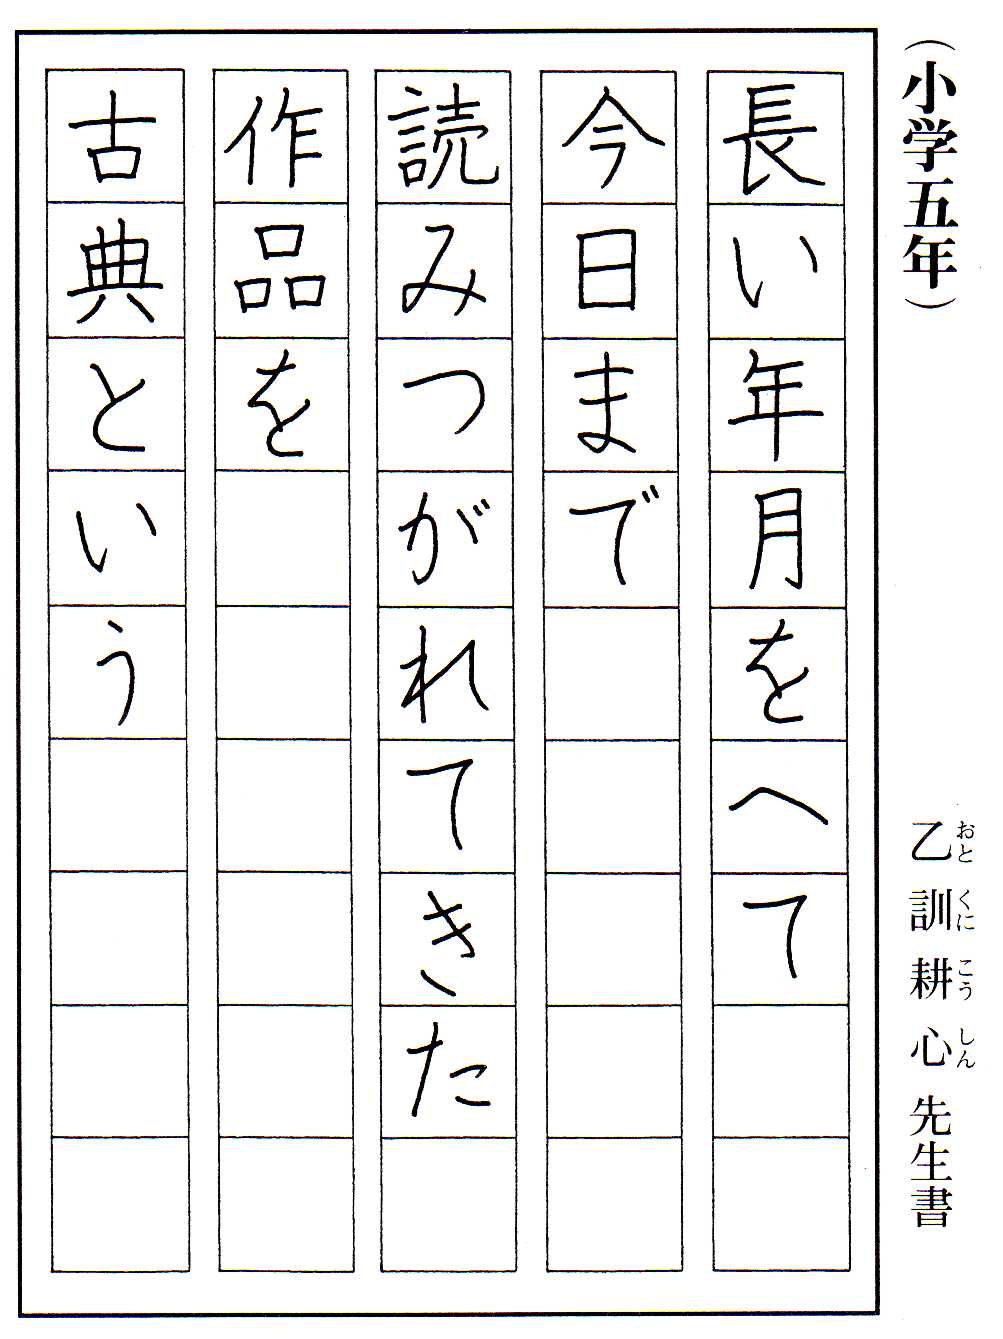 （小学五年）
乙訓耕心先生書
おとくにこうしん
長い年月をへて
今日まで
読みつがれてきた
作品を
古典という